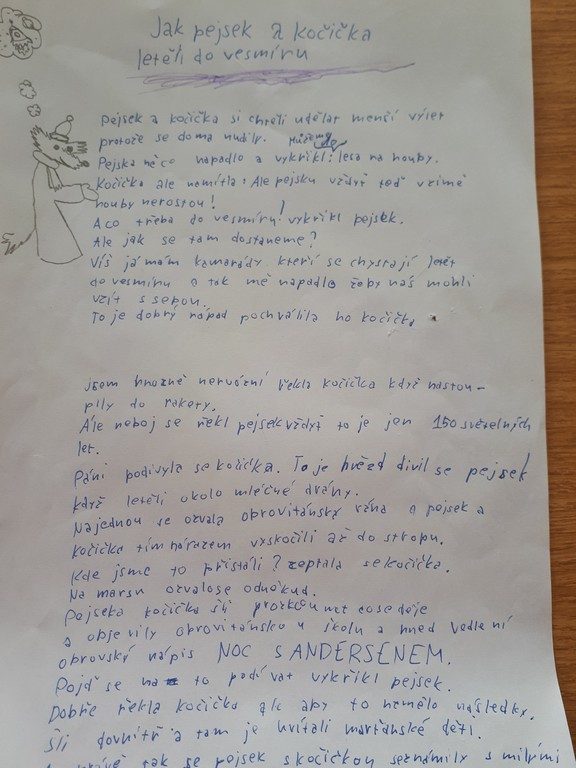 Jak pejsek a kočička
letěli do vesmíru
Pejsek a kočička si chtěli udělat menčí výlet
protože se doma nudily. můžeme do
Pejska něco napadlo a vykřikl: lesa na houby.
Kočička ale namítla: Ale pejsku vždyť teď v zimě
houby nerostou!
A co třeba do vesmíru! vykřikl pejsek.
Ale jak se tam dostaneme?
Víš já mám kamarády kteří se chystají letět
do vesmíru a tak mě napadlo žeby nás mohli
vzít s sebou.
To je dobrý nápad pochválila ho kočička
Jsem hrozně nervózní řekla kočička když nastou-
pily do rakety.
Ale neboj se řekl pejsek vždyť to je jen 150 světelných
let.
Páni podivyla se kočička. To je hvězd divil se pejsek
když letěli okolo mléčné dráhy.
Najednou se ozvala obrovitánský rána a pejsek a
kočička tím nárazem vyskočili až do stropu.
Kde jsme to přistáli? zeptala se kočička.
Na marsu ozvalose odněkud.
Pejseka kočička šli prozkoumat cose děje
a objevily obrovitánskou školu a hned vedle ní
obrovský nápis NOC S ANDERSENEM.
Pojď se na to podívat vykřikl pejsek.
Dobře řekla kočička ale aby to nemělo následky.
Šli dovnitř a tam je uvítali marťanské děti.
tak se pejsek s kočičkou seznámily s milými